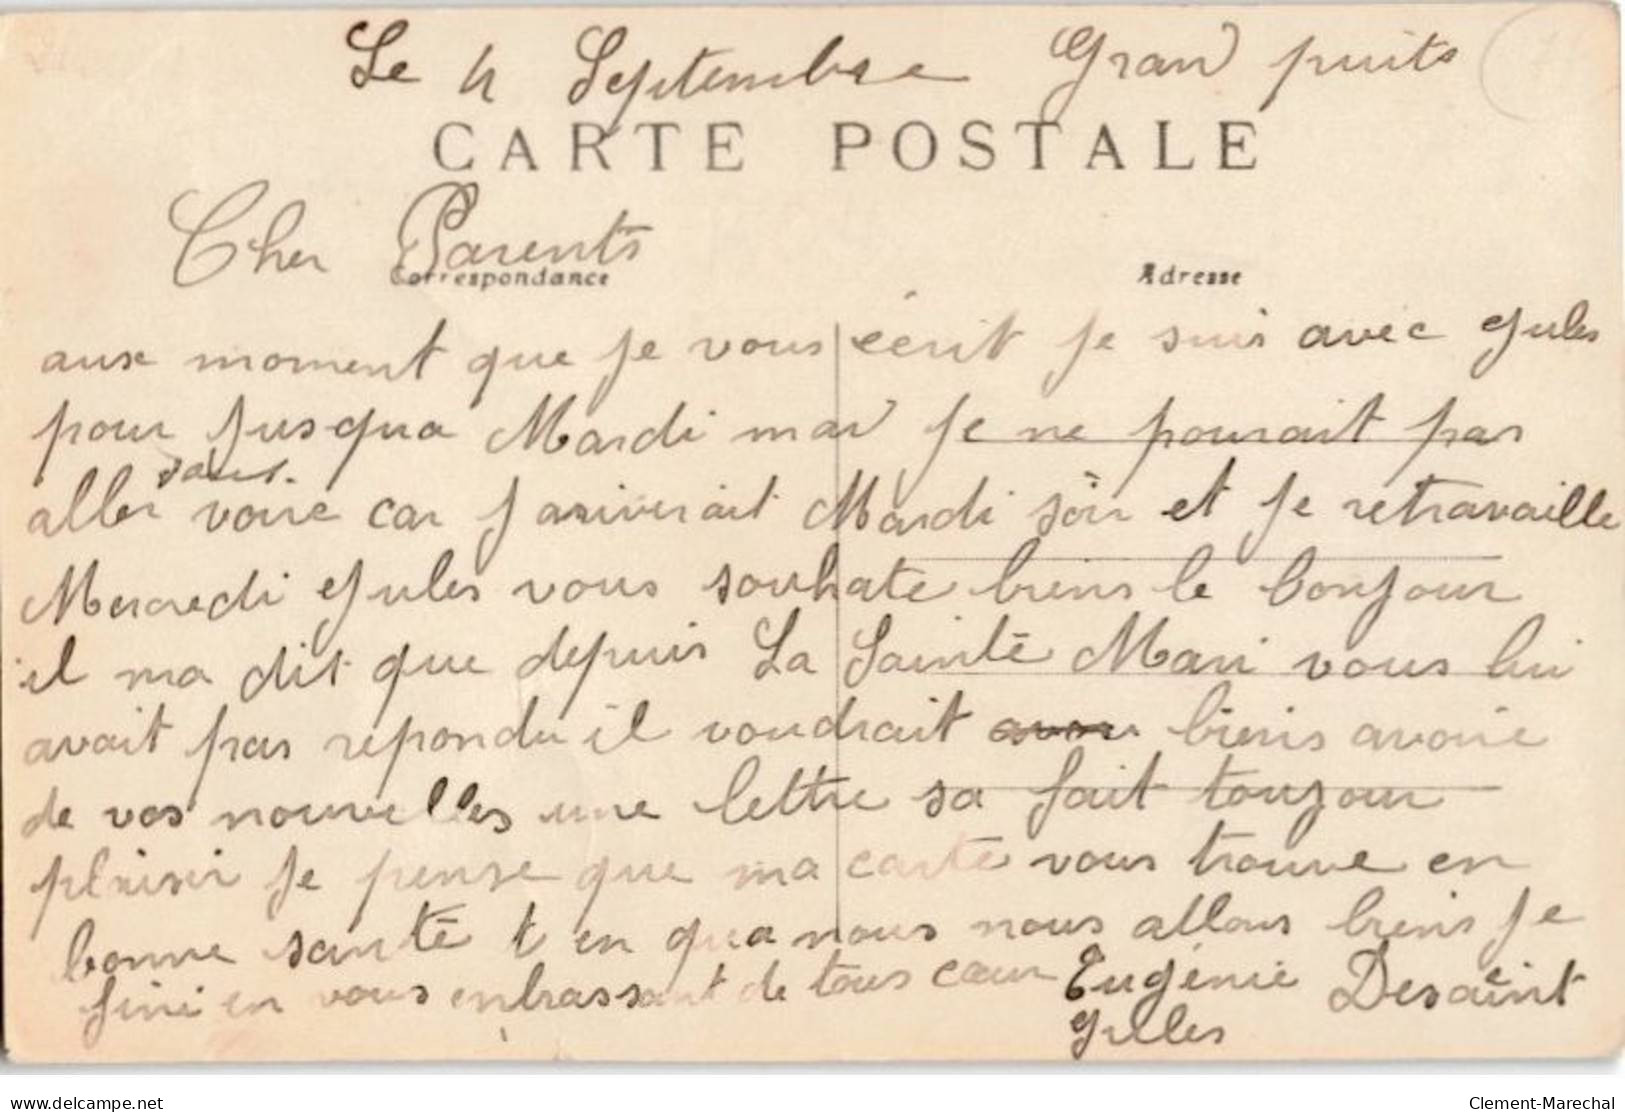 Le 4 Septembre Gran puits
CARTE POSTALE
Cher Parents
Correspondance
Adresse
aux moment que je vous écrit je suis avec Jules
pour jusqua Mardi mai je ne pourait pas
vous
aller voire car j ariverait Mardi soir et je retravaille
Mercredi Jules vous souhate biens le bonjour
il ma dit que depuis La Sainte Mari vous lui
avait pas repondu il voudrait biens avoire
de vos nouvelles une lettre sa fait toujour
plaisir je pense que ma carte vous trouve en
bonne santé t en qua nous nous allons biens je
fini en vous enbrassant de tous cœur Eugénie Desaint
Jules
delcampe.net
Clement-Marechal